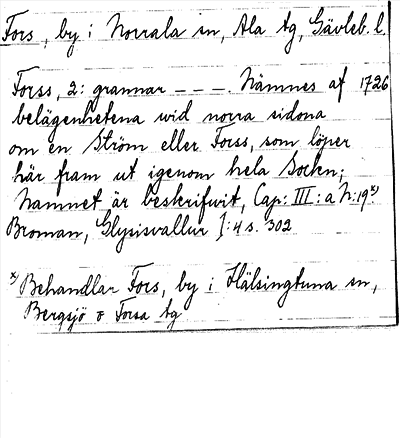 Fors, by i Norrala sn, Ala tg, Gävleb. l.
Forss, 2: grannar – – –. Nämnes af 1726
belägenhetena wid norra sidona
om en Ström eller Forss, som löper
här fram ut igenom hela Sockn;
Namnet är beskrifwit, Cap: III: a N: 19 x)
Broman, Glysisvallur I: 4 s. 302
x) Behandlar Fors, by i Hälsingtuna sn,
Bergsjö o Forsa tg